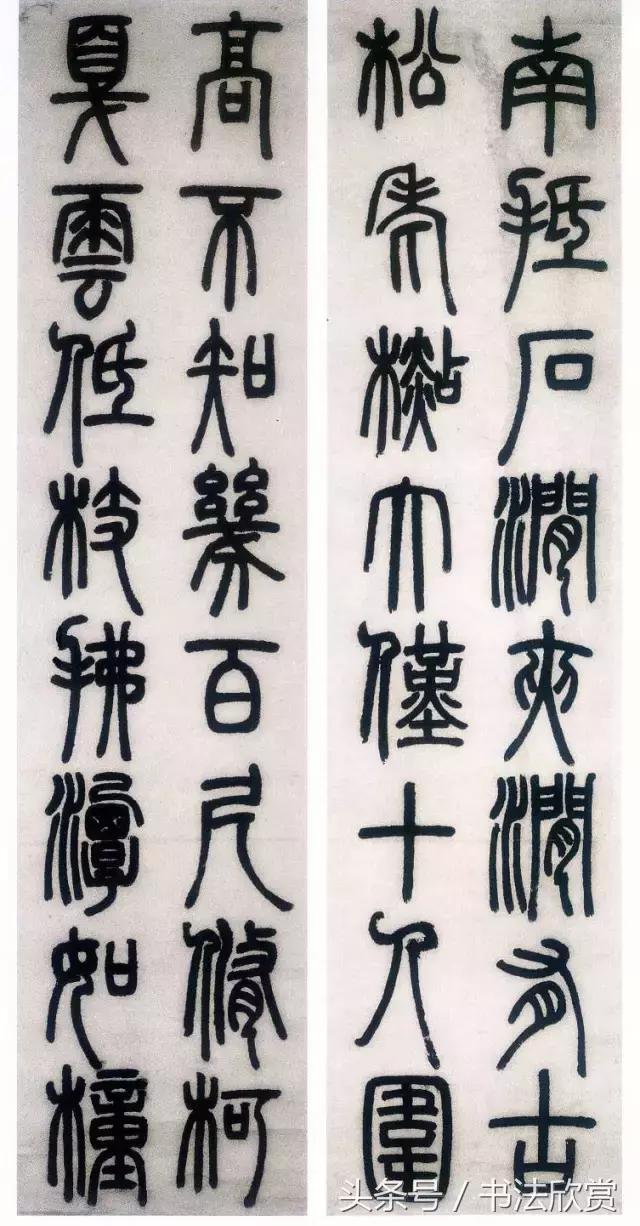 南抵石澗夾澗有古
松老檆大僅十人圍
高不知幾百尺脩柯
戛雲低枝拂潭如橦
头条号 / 书法欣赏